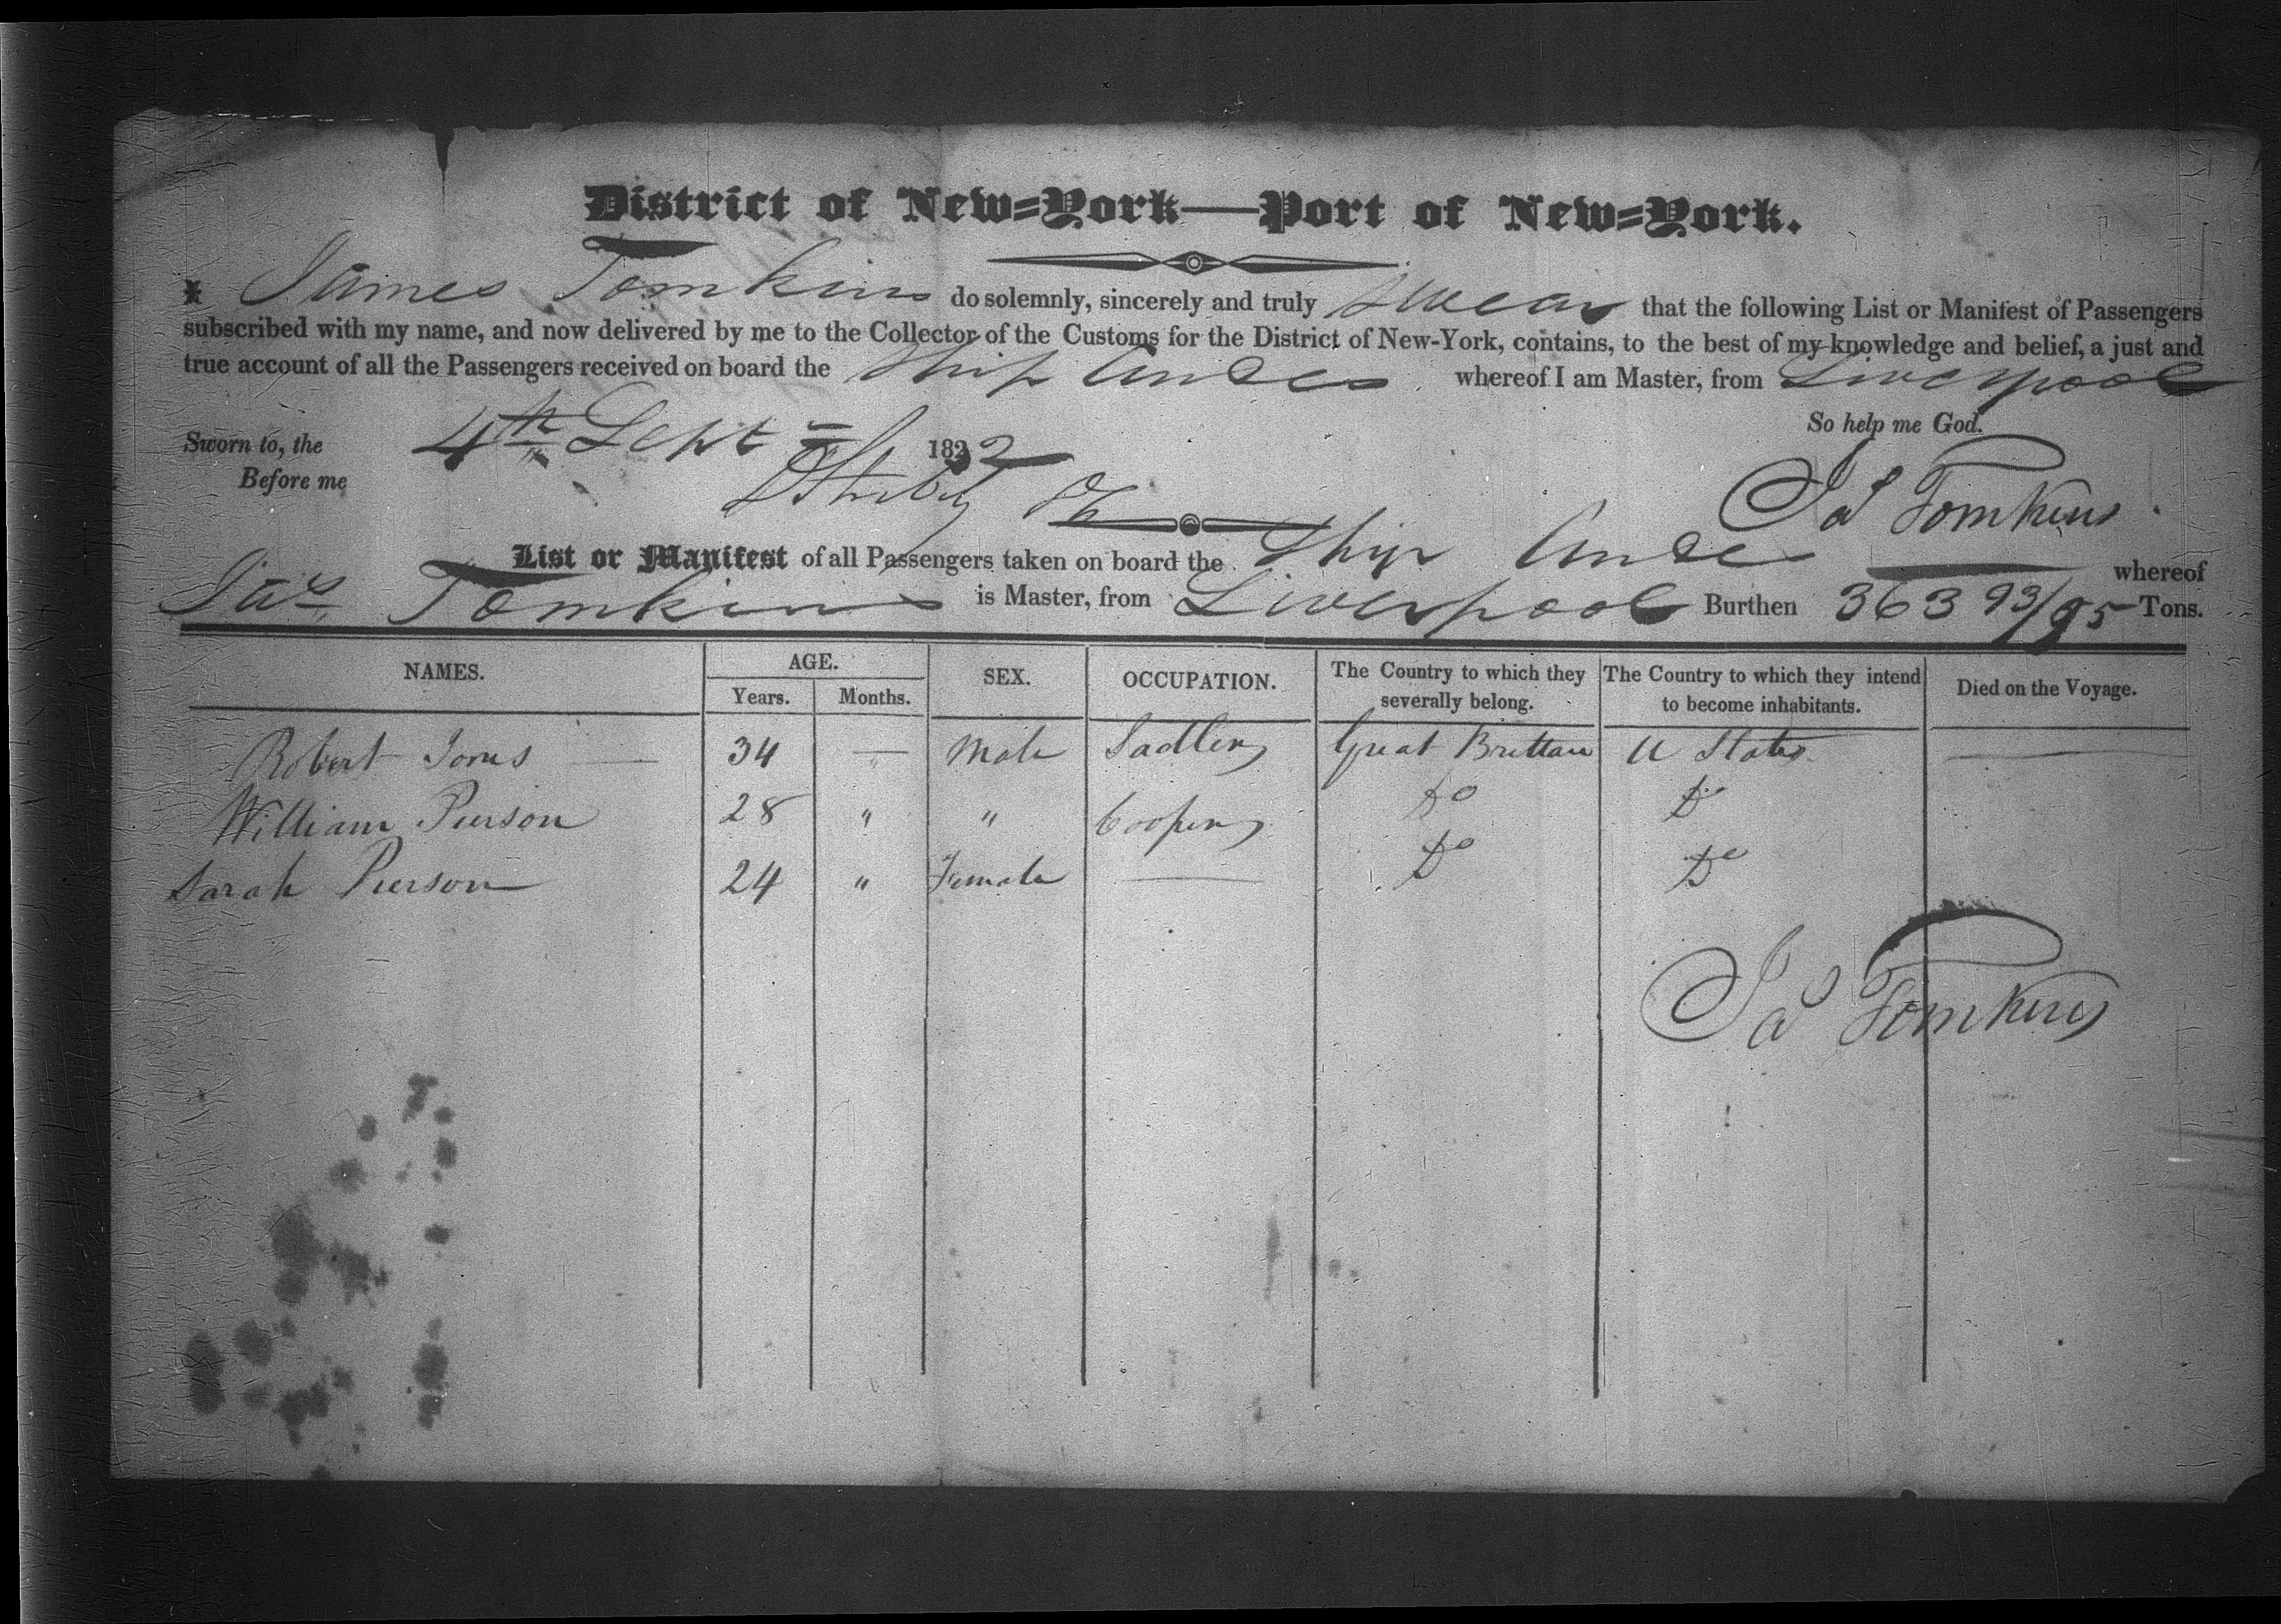 District of New-York—Port of New-York.
I James Tomkins do solemnly, sincerely and truly Swear that the following List or Manifest of Passengers
subscribed with my name, and now delivered by me to the Collector of the Customs for the District of New-York, contains, to the best of my knowledge and belief, a just and
true account of all the Passengers received on board the Ship Andes whereof I am Master, from Liverpool
So help me God.
Sworn to, the 4th Sept 1832
Before me
Jas Tomkins
List or Manifest of all Passengers taken on board the Ship Andes whereof
Jas Tomkins is Master, from Liverpool Burthen 363 93/95 Tons.
NAMES. AGE. SEX. OCCUPATION. The Country to which they severally belong. The Country to which they intend to become inhabitants. Died on the Voyage.
Years. Months.
Robert Jones — 34 — Male Sadler Great Brittain U States —
William Pierson 28 " " Cooper Do Do
Sarah Pierson 24 " Female — Do Do
Jas Tomkins